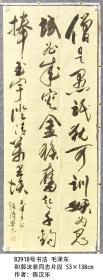 僧是愚氓犹可訓妖為鬼
蜮必成灾金猴奮起千鈞
棒玉宇澄清萬里埃
B2918号书法 毛泽东
和郭沫若同志片段 53×138cm
作者：陈汉乐